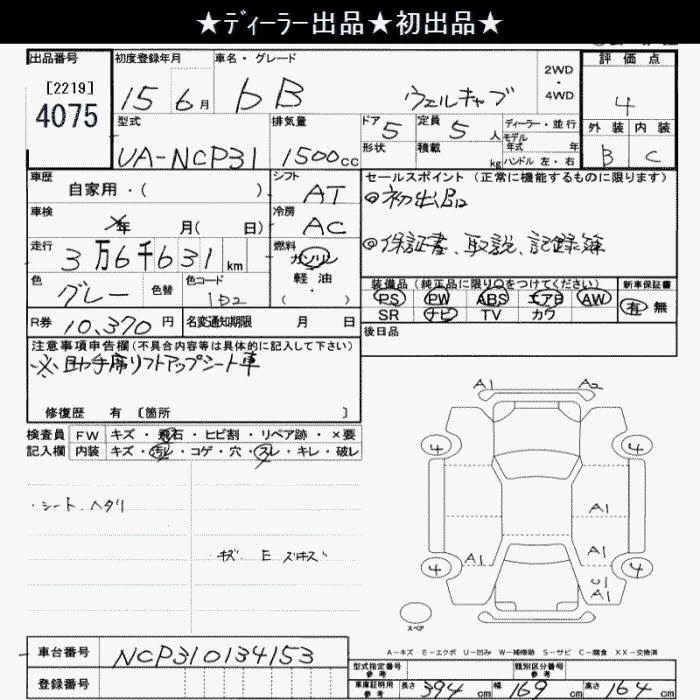 ★ディーラー出品★初出品★
出品番号 初度登録年月 車名・グレード 評価点
[2219]
4075
15 6月 bB ウェルキャブ 2WD・4WD 4
型式 排気量 ドア 5 定員 5人 ディーラー・並行 外装 内装
UA-NCP31 1500cc 形状 積載 kg モデル年式 年 ハンドル 左・右 B C
車歴 自家用・( ) シフト AT セールスポイント(正常に機能するものに限ります)
◎初出品
車検 年 月( 日) 冷房 AC
◎保証書、取説、記録簿
走行 3万6千631km 燃料 ガソリン 軽油・( )
色 グレー 色替 色コード 1D2
装備品(純正品に限り○をつけてください) 新車保証書
PS PW ABS エアB AW 有 無
SR ナビ TV カワ
R券 10,370円 名変通知期限 月 日 後日品
注意事項申告欄(不具合内容等は具体的に記入して下さい)
※助手席リフトアップシート車
修復歴 有 〔箇所 〕
検査員 FW キズ・飛石・ヒビ割・リペア跡・×要
記入欄 内装 キズ・汚レ・コゲ・穴・スレ・キレ・破レ
・シート、ヘタリ
キズ E
A1 A2
4 4
A1
A1 A1
4 4
U1
A1
スペア
A-キズ E-エクボ U-凹み W-補修跡 S-サビ C-腐食 XX-交換済
車台番号 NCP310134153
型式指定番号 参考 類別区分番号 参考
登録番号 車庫証明用参考 長さ 394cm 幅 169cm 高さ 164cm